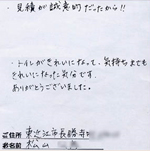 ・見積が誠意的だったから!!
・トイレがきれいになって、気持ちまでも
きれいになった気分です。
ありがとうございました。
ご住所 東近江市長勝寺町
お名前 松山